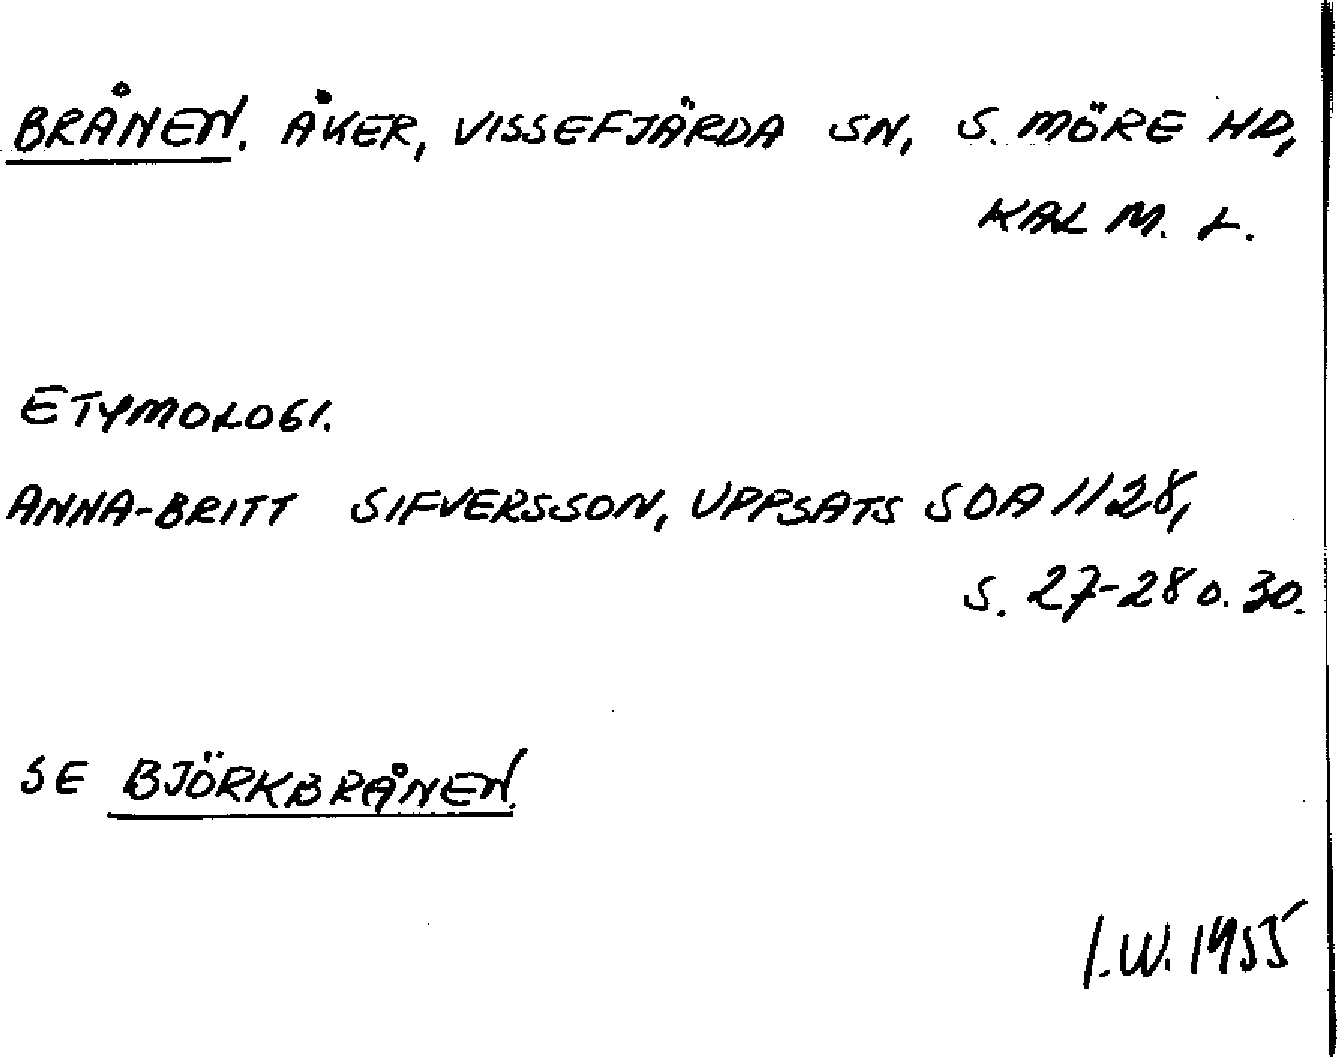 BRÅNEN. ÅKER, VISSEFJÄRDA SN, S. MÖRE HD,
KALM. L.
ETYMOLOGI.
ANNA-BRITT SIFVERSSON, UPPSATS SOA 1128,
S. 27-28 o. 30.
SE BJÖRKBRÅNEN.
I.W. 1955